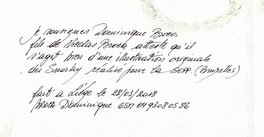 Je soussigné Dominique Broca
fils de Nicolas Broca atteste qu'il
s'agit bien d'une illustration originale
des Snorky réalisé pour la (Bruxelles)
fait à Liège le 28/03/2018
Broca Dominique